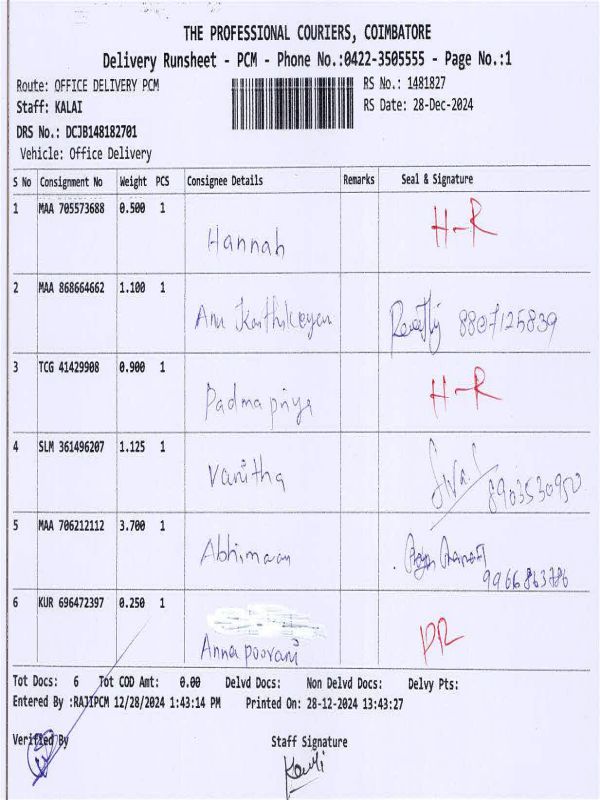 THE PROFESSIONAL COURIERS, COIMBATORE
Delivery Runsheet - PCM - Phone No.:0422-3505555 - Page No.:1
Route: OFFICE DELIVERY PCM RS No.: 1481827
Staff: KALAI RS Date: 28-Dec-2024
DRS No.: DCJB148182701
Vehicle: Office Delivery
S No Consignment No Weight PCS Consignee Details Remarks Seal & Signature
1 MAA 705573688 0.500 1 Hannah H-R
2 MAA 868664662 1.100 1 Anu Karthikeyan 8807125839
3 TCG 41429908 0.900 1 Padma priya H-R
4 SLM 361496207 1.125 1 Vanitha Siva.S 8903530950
5 MAA 706212112 3.700 1 Abhimaan
6 KUR 696472397 0.250 1 Annapoorani DR
Tot Docs: 6 Tot COD Amt: 0.00 Delvd Docs: Non Delvd Docs: Delvy Pts:
Entered By :RAJIPCM 12/28/2024 1:43:14 PM Printed On: 28-12-2024 13:43:27
Verified By Staff Signature